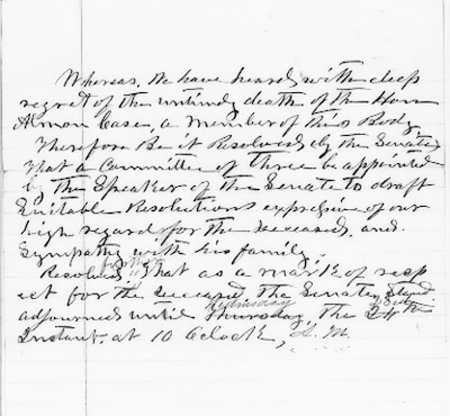 Whereas, We have heard with deep
regret of the untimely death of the Hon
Almon Case, a member of this Body,
Therefore Be it Resolved by the Senate
that a Committee of three be appointed
by the Speaker of the Senate to draft
Suitable Resolutions expressive of our
high regard for the deceased, and
Sympathy with his family,
further
Resolved, That as a mark of resp
ect for the deceased the Senate stand
Wednesday
adjourned until Thursday the 24th
Instant. at 10 Oclock, A. M.